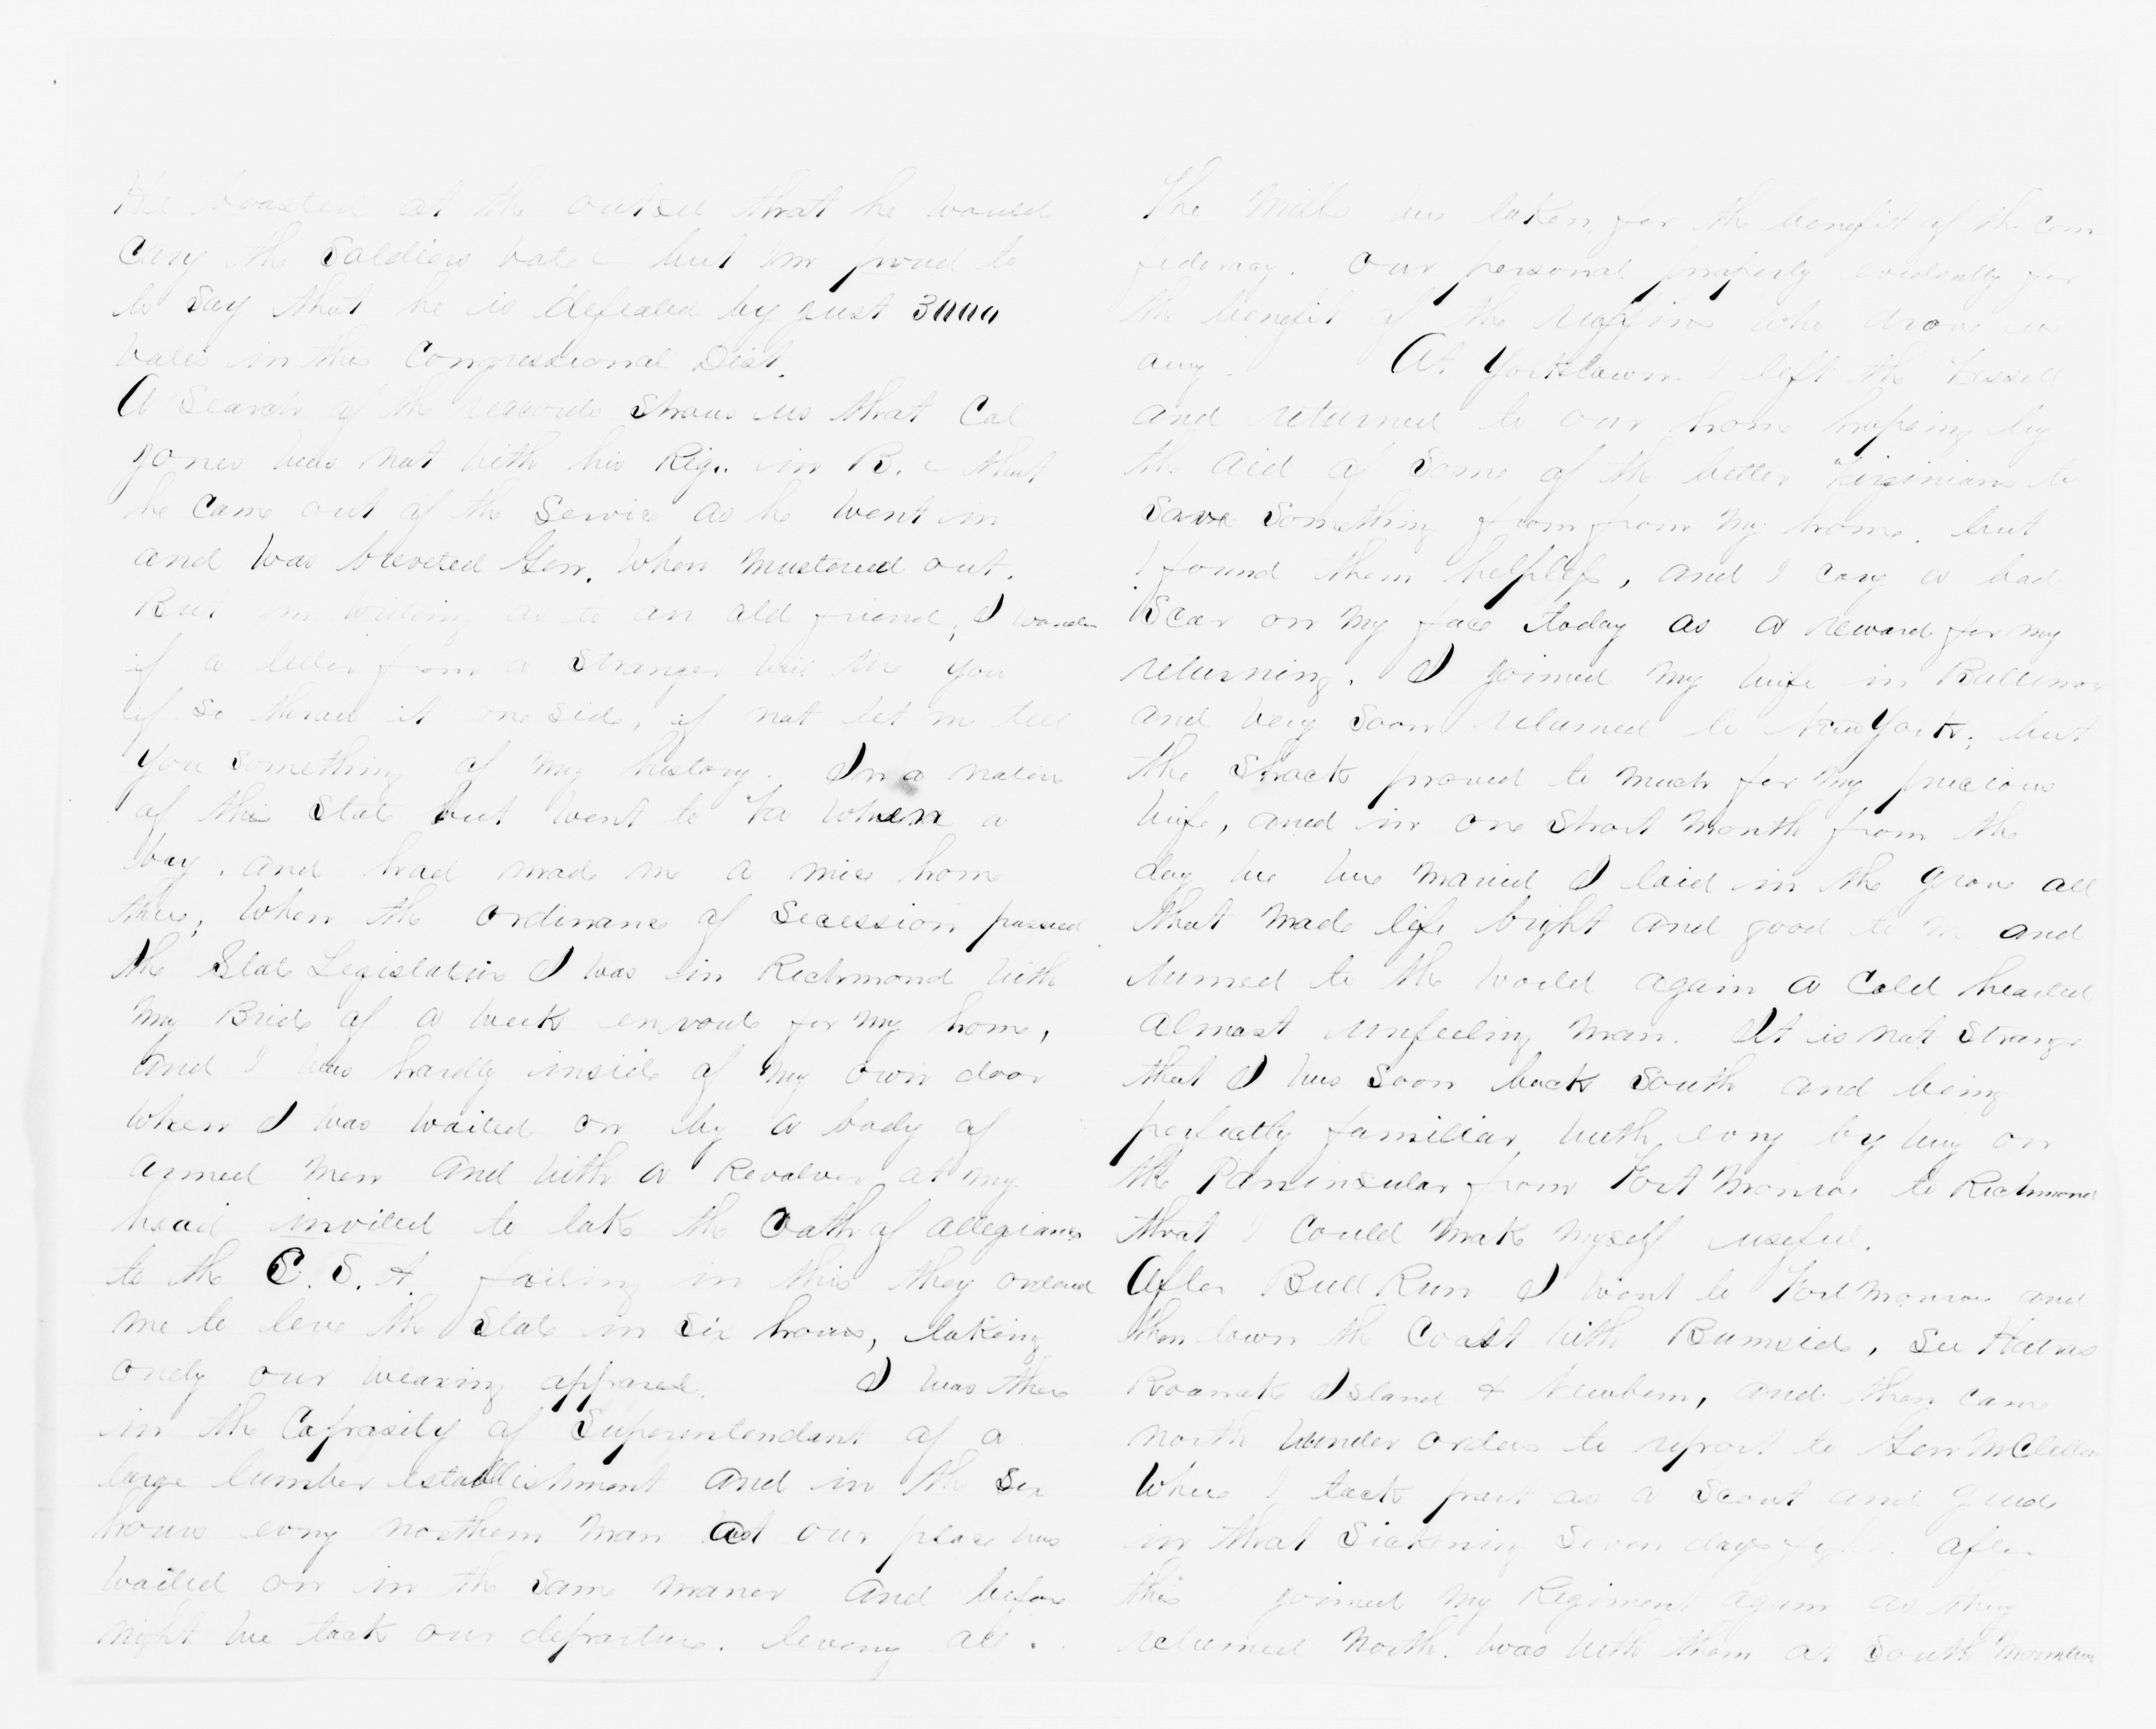 He boasted at the outset that he would
cary the Soldiers vote – but Im proud to
to say that he is defeated by just 3000
votes in this Congressional Dist.
A Search of the reccords shows us that Col
Jones was not with his Rig.. in B. – that
he came out of the Service as he went in
and was breveted Gen. when mustered out.
But Im writing as to an old friend, I wonder
if a letter from a Stranger will tire you
if so throw it one side, if not let me tell
you Something of my history. Im a native
of this State but went to Va when a
boy. and had made me a nice home
there, when the ordinance of Secession passed
the State Legislature I was in Richmond with
my Bride of a week enroute for my home,
and I was hardly inside of my own door
when I was waited on by a body of
armed men and with a Revolver at my
head invited to take the Oath of allegiance
to the C. S. A. failing in this they ordered
me to leve the State in Six hours, taking
onely our wearing apparel. I was there
in the Capasity of Superentendant of a
large lumber establishment and in the Six
hours evry northern man at our place was
waited on in the Same maner and before
night we took our departure. leveng all.
The Mills were taken for the benefit of the Con
federacy. Our personal property evidently for
the benefit of the ruffins who drove us
away. At Yorktown I left the Vessell
and returned to our home hopeing by
the aid of Some of the better Virginians to
Save Something from from my home. but
I found them helpless, and I cary a bad
Scar on my face today as a reward for my
returning. I joined my wife in Baltimore
and very Soon returned to New York; but
the Shock proved to much for my precious
wife, and in one Short Month from the
day we were Maried I laid in the Grave all
that made life bright and good to me and
turned to the world again a Cold hearted
almost unfeeling man. It is not Strange
that I was Soon back South and being
perfectly familiar with evry by way on
the Paninsular from Fort Monroe to Richmond
that I Could Make myself useful.
After Bull Run I went to Fort Monroe and
then down the Coast with Burnside, See Hatras
Roanoke Island & Newbern, and then came
north under orders to report to Gen McClellan
Where I took part as a Scout and guide
in that Sickening Seven days fight. after
this joined my Regiment again as they
returned North. was with them at South Mountain